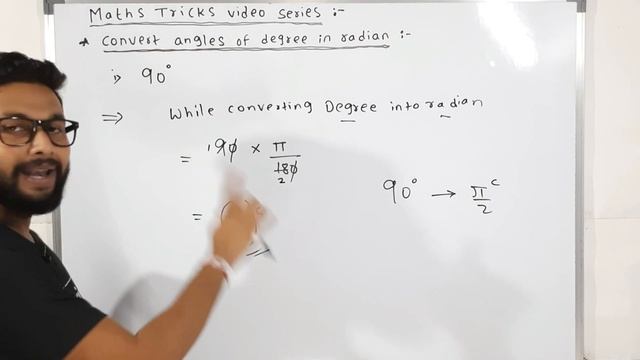 Maths Tricks video series :-
* Convert angles of degree in radian :-
i) 90°
⇒ While converting Degree into radian
= 90 × π/180
1 2
90° → π^c/2
=